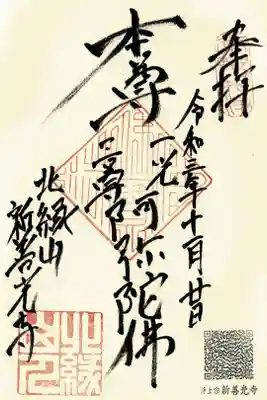 奉拝
令和三年十月廿日
本尊
一光三尊阿弥陀佛
北縁山
新善光寺
浄土宗 新善光寺